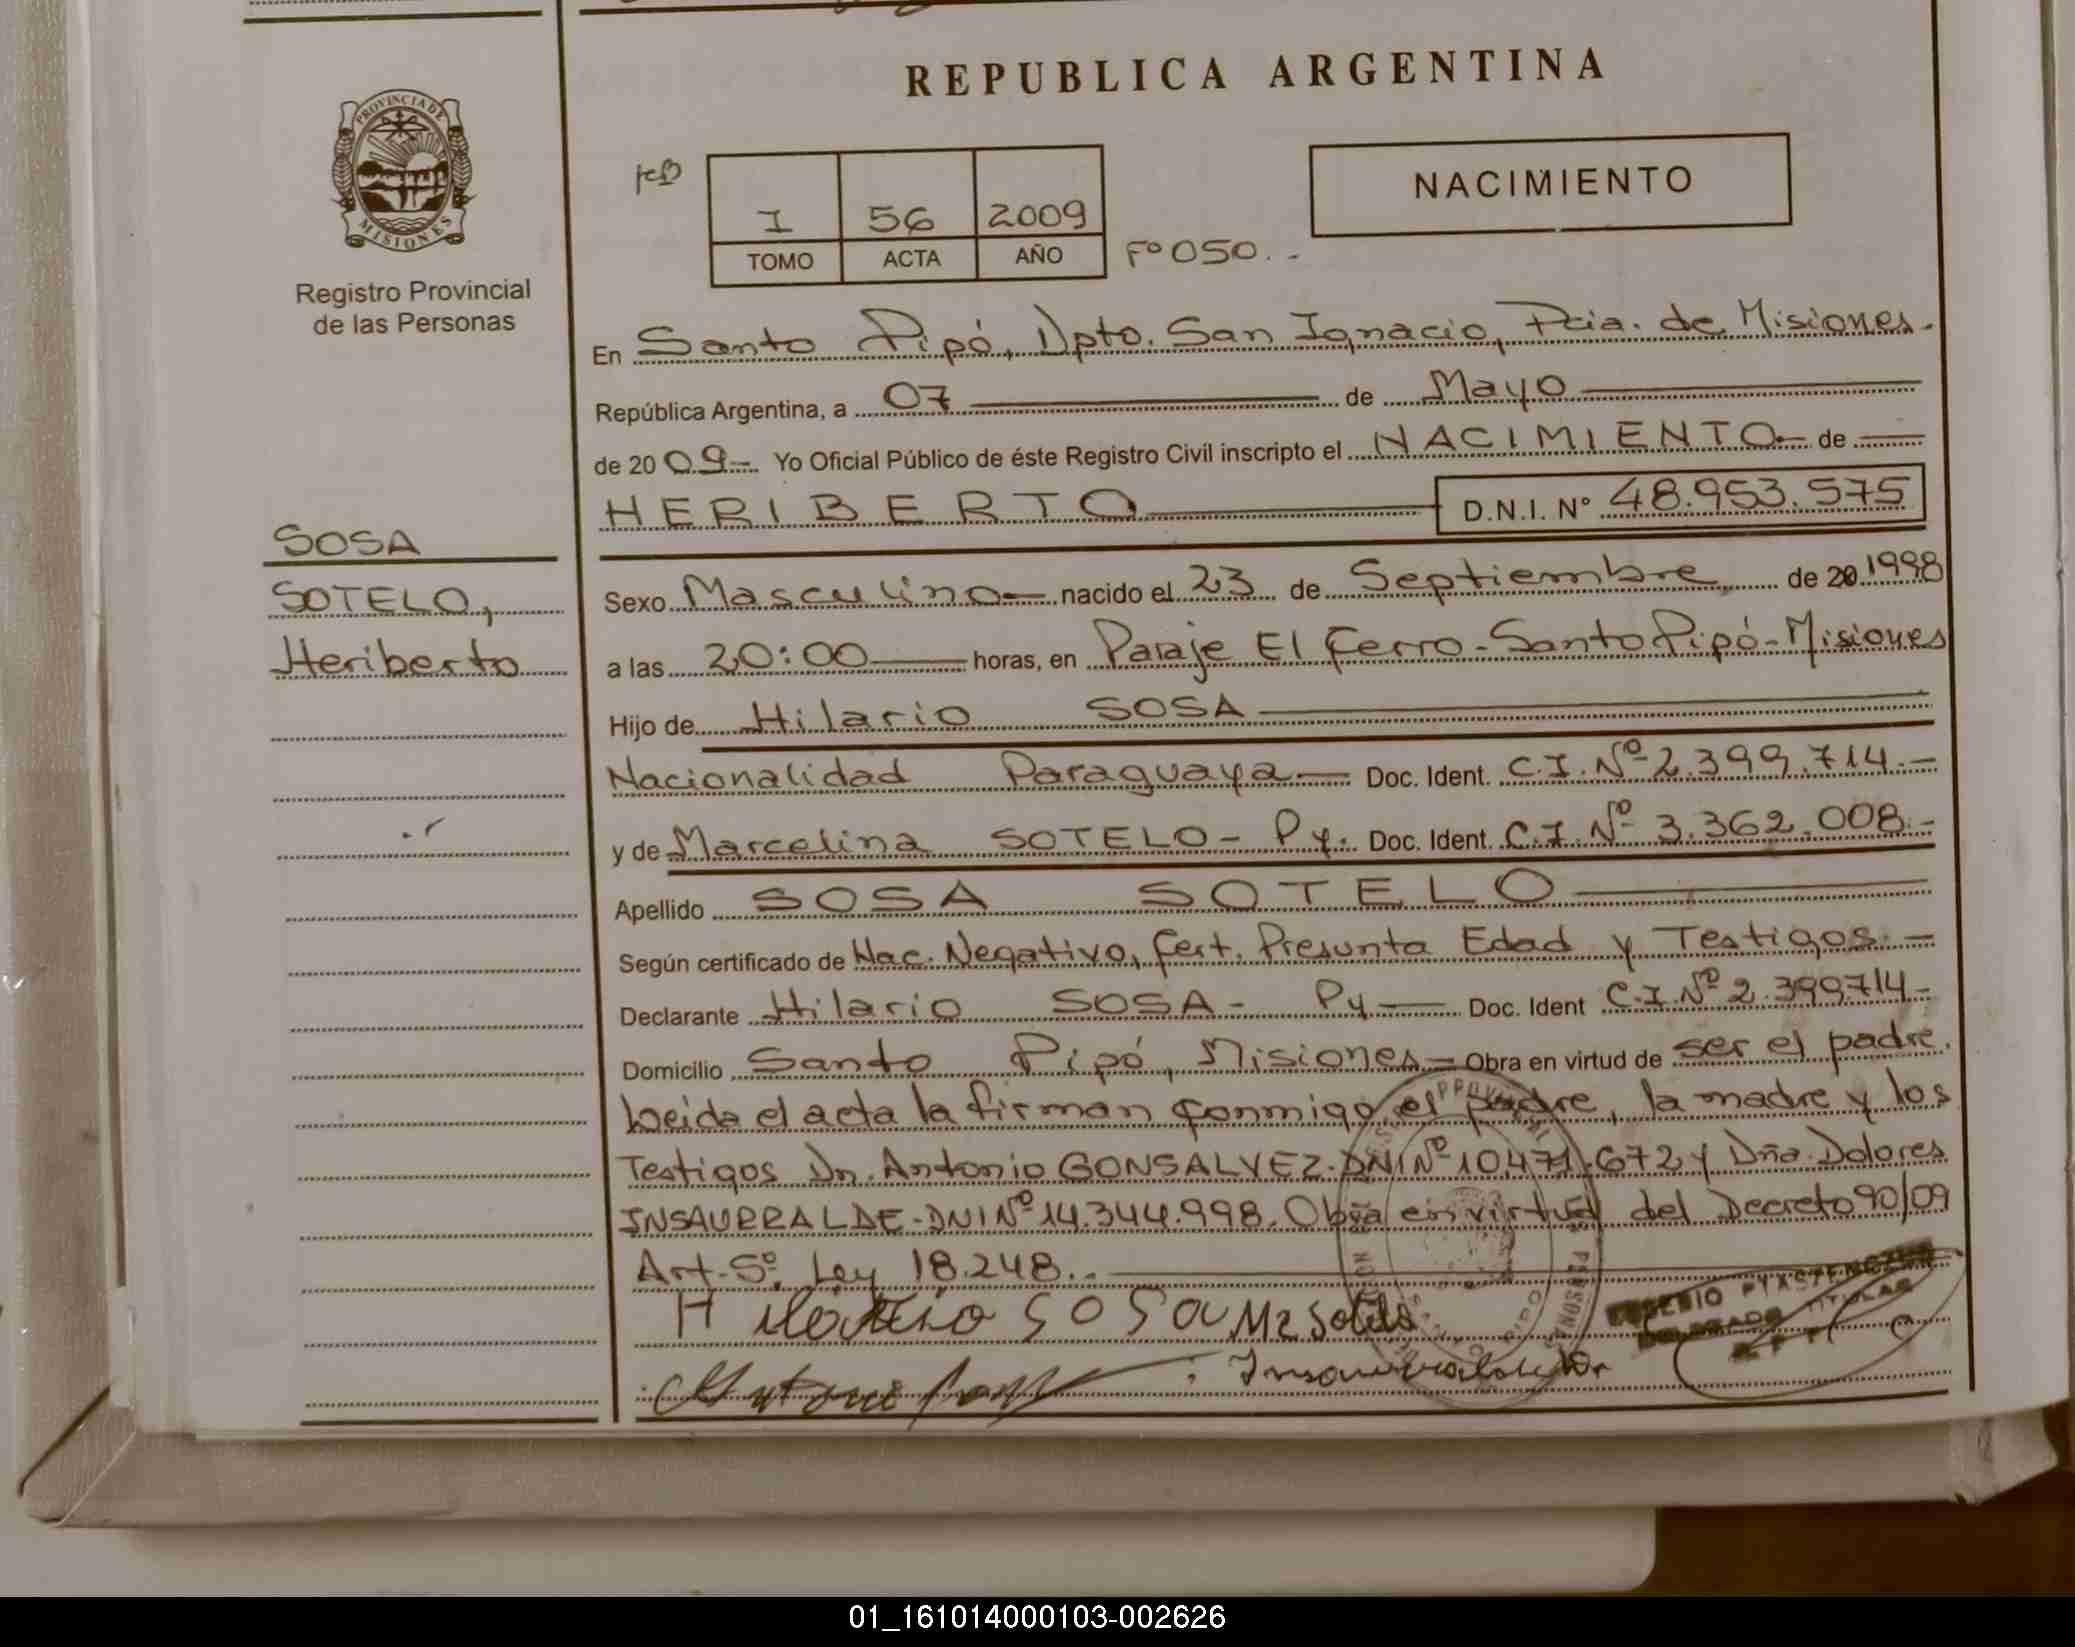 REPUBLICA ARGENTINA
PROVINCIA DE
MISIONES
Registro Provincial
de las Personas
I 56 2009
TOMO ACTA AÑO
Fº 050.-
NACIMIENTO
En Santo Pipó, Dpto. San Ignacio, Pcia. de Misiones.
República Argentina, a 07 de Mayo
de 2009- Yo Oficial Público de éste Registro Civil inscripto el NACIMIENTO de
HERIBERTO D.N.I. Nº 48.953.575
SOSA
SOTELO,
Heriberto
Sexo Masculino nacido el 23 de Septiembre de 20 1998
a las 20:00 horas, en Paraje El Cerro - Santo Pipó - Misiones
Hijo de Hilario SOSA
Nacionalidad Paraguaya Doc. Ident. C.I. Nº 2.399.714.-
y de Marcelina SOTELO - Py. Doc. Ident. C.I. Nº 3.362.008.-
Apellido SOSA SOTELO
Según certificado de Nac. Negativo, Cert. Presunta Edad y Testigos.-
Declarante Hilario SOSA - Py Doc. Ident C.I. Nº 2.399.714-
Domicilio Santo Pipó, Misiones Obra en virtud de ser el padre.
Leida el acta la firman conmigo el padre, la madre y los
Testigos Dn. Antonio GONSALVEZ - DNI Nº 10.471.672 y Dña. Dolores
INSAURRALDE - DNI Nº 14.344.998. Obra en virtud del Decreto 90/09
Art. 5º. Ley 18.248.-
Hilario SOSA Mz Sotelo
DELEGADO TITULAR
Insaurralde
01_161014000103-002626